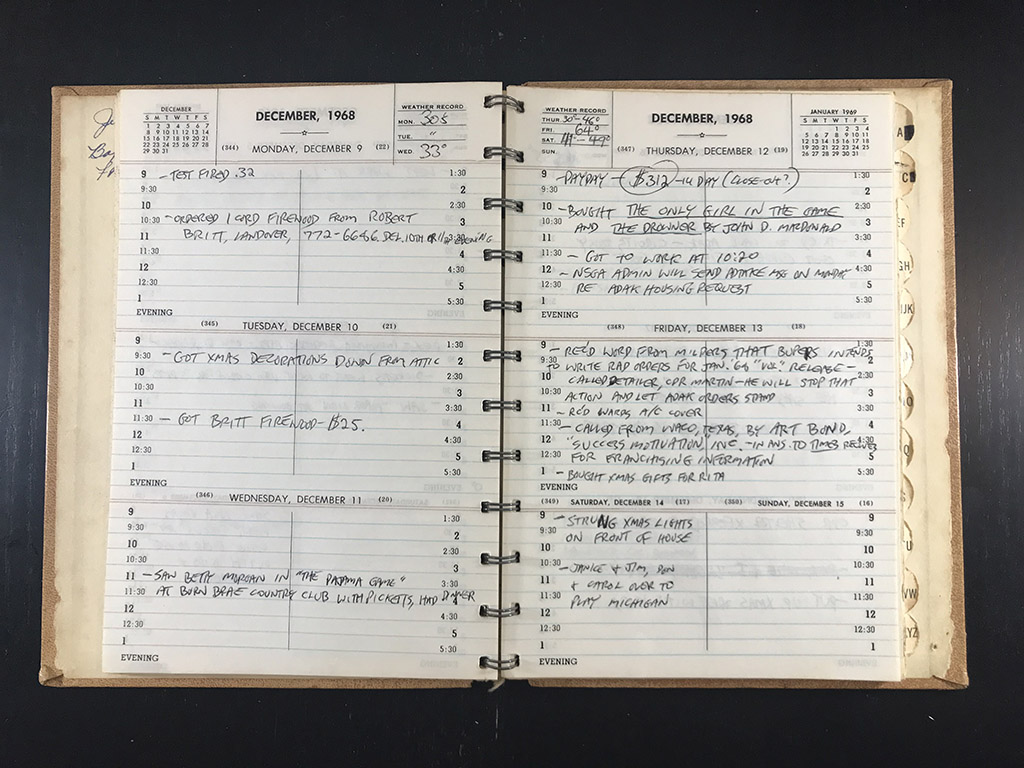 DECEMBER
S M T W T F S
1 2 3 4 5 6 7
8 9 10 11 12 13 14
15 16 17 18 19 20 21
22 23 24 25 26 27 28
29 30 31
DECEMBER, 1968
(344) MONDAY, DECEMBER 9 (22)
WEATHER RECORD
MON. 30s
TUE. "
WED. 33°
9 - TEST FIRED .32 1:30
9:30 2
10 2:30
10:30 - ORDERED 1 CORD FIREWOOD FROM ROBERT 3
11 BRITT, LANDOVER, 772-6686. DEL. 10TH OR 11 EVENING
11:30 4
12 4:30
12:30 5
1 5:30
EVENING
(345) TUESDAY, DECEMBER 10 (21)
9 1:30
9:30 - GOT XMAS DECORATIONS DOWN FROM ATTIC 2
10 2:30
10:30 3
11 3:30
11:30 - GOT BRITT FIREWOOD - $25. 4
12 4:30
12:30 5
1 5:30
EVENING
(346) WEDNESDAY, DECEMBER 11 (20)
9 1:30
9:30 2
10 2:30
10:30 3
11 - SAW BETTY MORGAN IN "THE PAJAMA GAME" 3:30
11:30 AT BURN BRAE COUNTRY CLUB WITH PICKETTS, HAD DINNER 4
12 4:30
12:30 5
1 5:30
EVENING
WEATHER RECORD
THUR. 30°-46°
FRI. 64°
SAT. 41°-49°
SUN.
DECEMBER, 1968
(347) THURSDAY, DECEMBER 12 (19)
JANUARY 1969
S M T W T F S
1 2 3 4
5 6 7 8 9 10 11
12 13 14 15 16 17 18
19 20 21 22 23 24 25
26 27 28 29 30 31
9 - PAYDAY - $312 - 14 DAY (CLOSE-OUT?) 1:30
9:30 2
10 - BOUGHT THE ONLY GIRL IN THE GAME 2:30
10:30 AND THE DROWNER BY JOHN D. MACDONALD 3
11 3:30
11:30 - GOT TO WORK AT 10:20 4
12 - NSGA ADMIN WILL SEND ADAK MSG ON MONDAY 4:30
12:30 RE ADAK HOUSING REQUEST 5
1 5:30
EVENING
(348) FRIDAY, DECEMBER 13 (18)
9 - REC'D WORD FROM MILPERS THAT BUPERS INTENDS 1:30
9:30 TO WRITE RAD ORDERS FOR JAN. '69 "VOL." RELEASE - 2
10 CALLED DETAILER, CDR MARTIN - HE WILL STOP THAT 2:30
10:30 ACTION AND LET ADAK ORDERS STAND 3
11 - REC'D WARDS A/C COVER 3:30
11:30 - CALLED FROM WACO, TEXAS, BY ART BOND, 4
12 "SUCCESS MOTIVATION," INC. - IN ANS. TO TIMES 4:30
12:30 FOR FRANCHISING INFORMATION 5
1 - BOUGHT XMAS GIFTS FOR RITA 5:30
EVENING
(349) SATURDAY, DECEMBER 14 (17) (350) SUNDAY, DECEMBER 15 (16)
9 - STRUNG XMAS LIGHTS 9
9:30 ON FRONT OF HOUSE 9:30
10 10
10:30 - JANICE & JIM, DON 10:30
11 & CAROL OVER TO 11
11:30 PLAY MICHIGAN 11:30
12 12
12:30 12:30
1 1
EVENING
A
C
EF
GH
IJK
O
Q
U
VW
XYZ